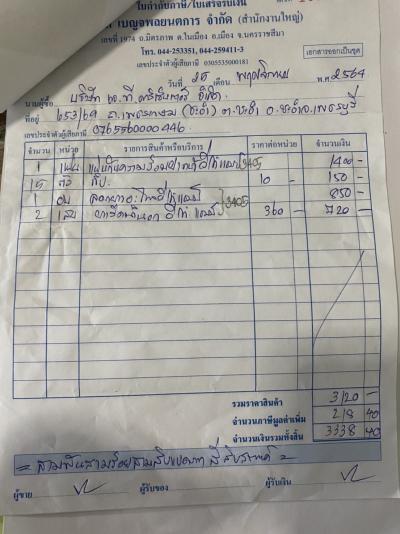 ใบกำกับภาษี/ใบเสร็จรับเงิน
เบญจพลยนตการ จำกัด (สำนักงานใหญ่)
เลขที่ 1974 ถ.มิตรภาพ ต.ในเมือง อ.เมือง จ.นครราชสีมา
โทร. 044-253351, 044-259411-3
เอกสารออกเป็นชุด
เลขประจำตัวผู้เสียภาษี 0305535000181
วันที่ 20 เดือน พฤษภาคม พ.ศ. 2564
นามผู้ซื้อ บริษัท จำกัด
ที่อยู่ 653/69 ถ.เพชรเกษม (ชะอำ) ต.ชะอำ อ.ชะอำ จ.เพชรบุรี
เลขประจำตัวผู้เสียภาษี 0765560000446
จำนวน หน่วย รายการสินค้าหรือบริการ ราคาต่อหน่วย จำนวนเงิน
1 แผ่น แผ่นกันความร้อน 3405 1400 -
15 ตัว กิ๊บ 10 - 150 -
1 อัน 3405 850 -
2 เส้น 360 - 720 -
รวมราคาสินค้า 3120 -
จำนวนภาษีมูลค่าเพิ่ม 218 40
จำนวนเงินรวมทั้งสิ้น 3338 40
= สามพันสามร้อยสามสิบแปดบาทสี่สิบสตางค์ =
ผู้ขาย ผู้รับของ ผู้รับเงิน